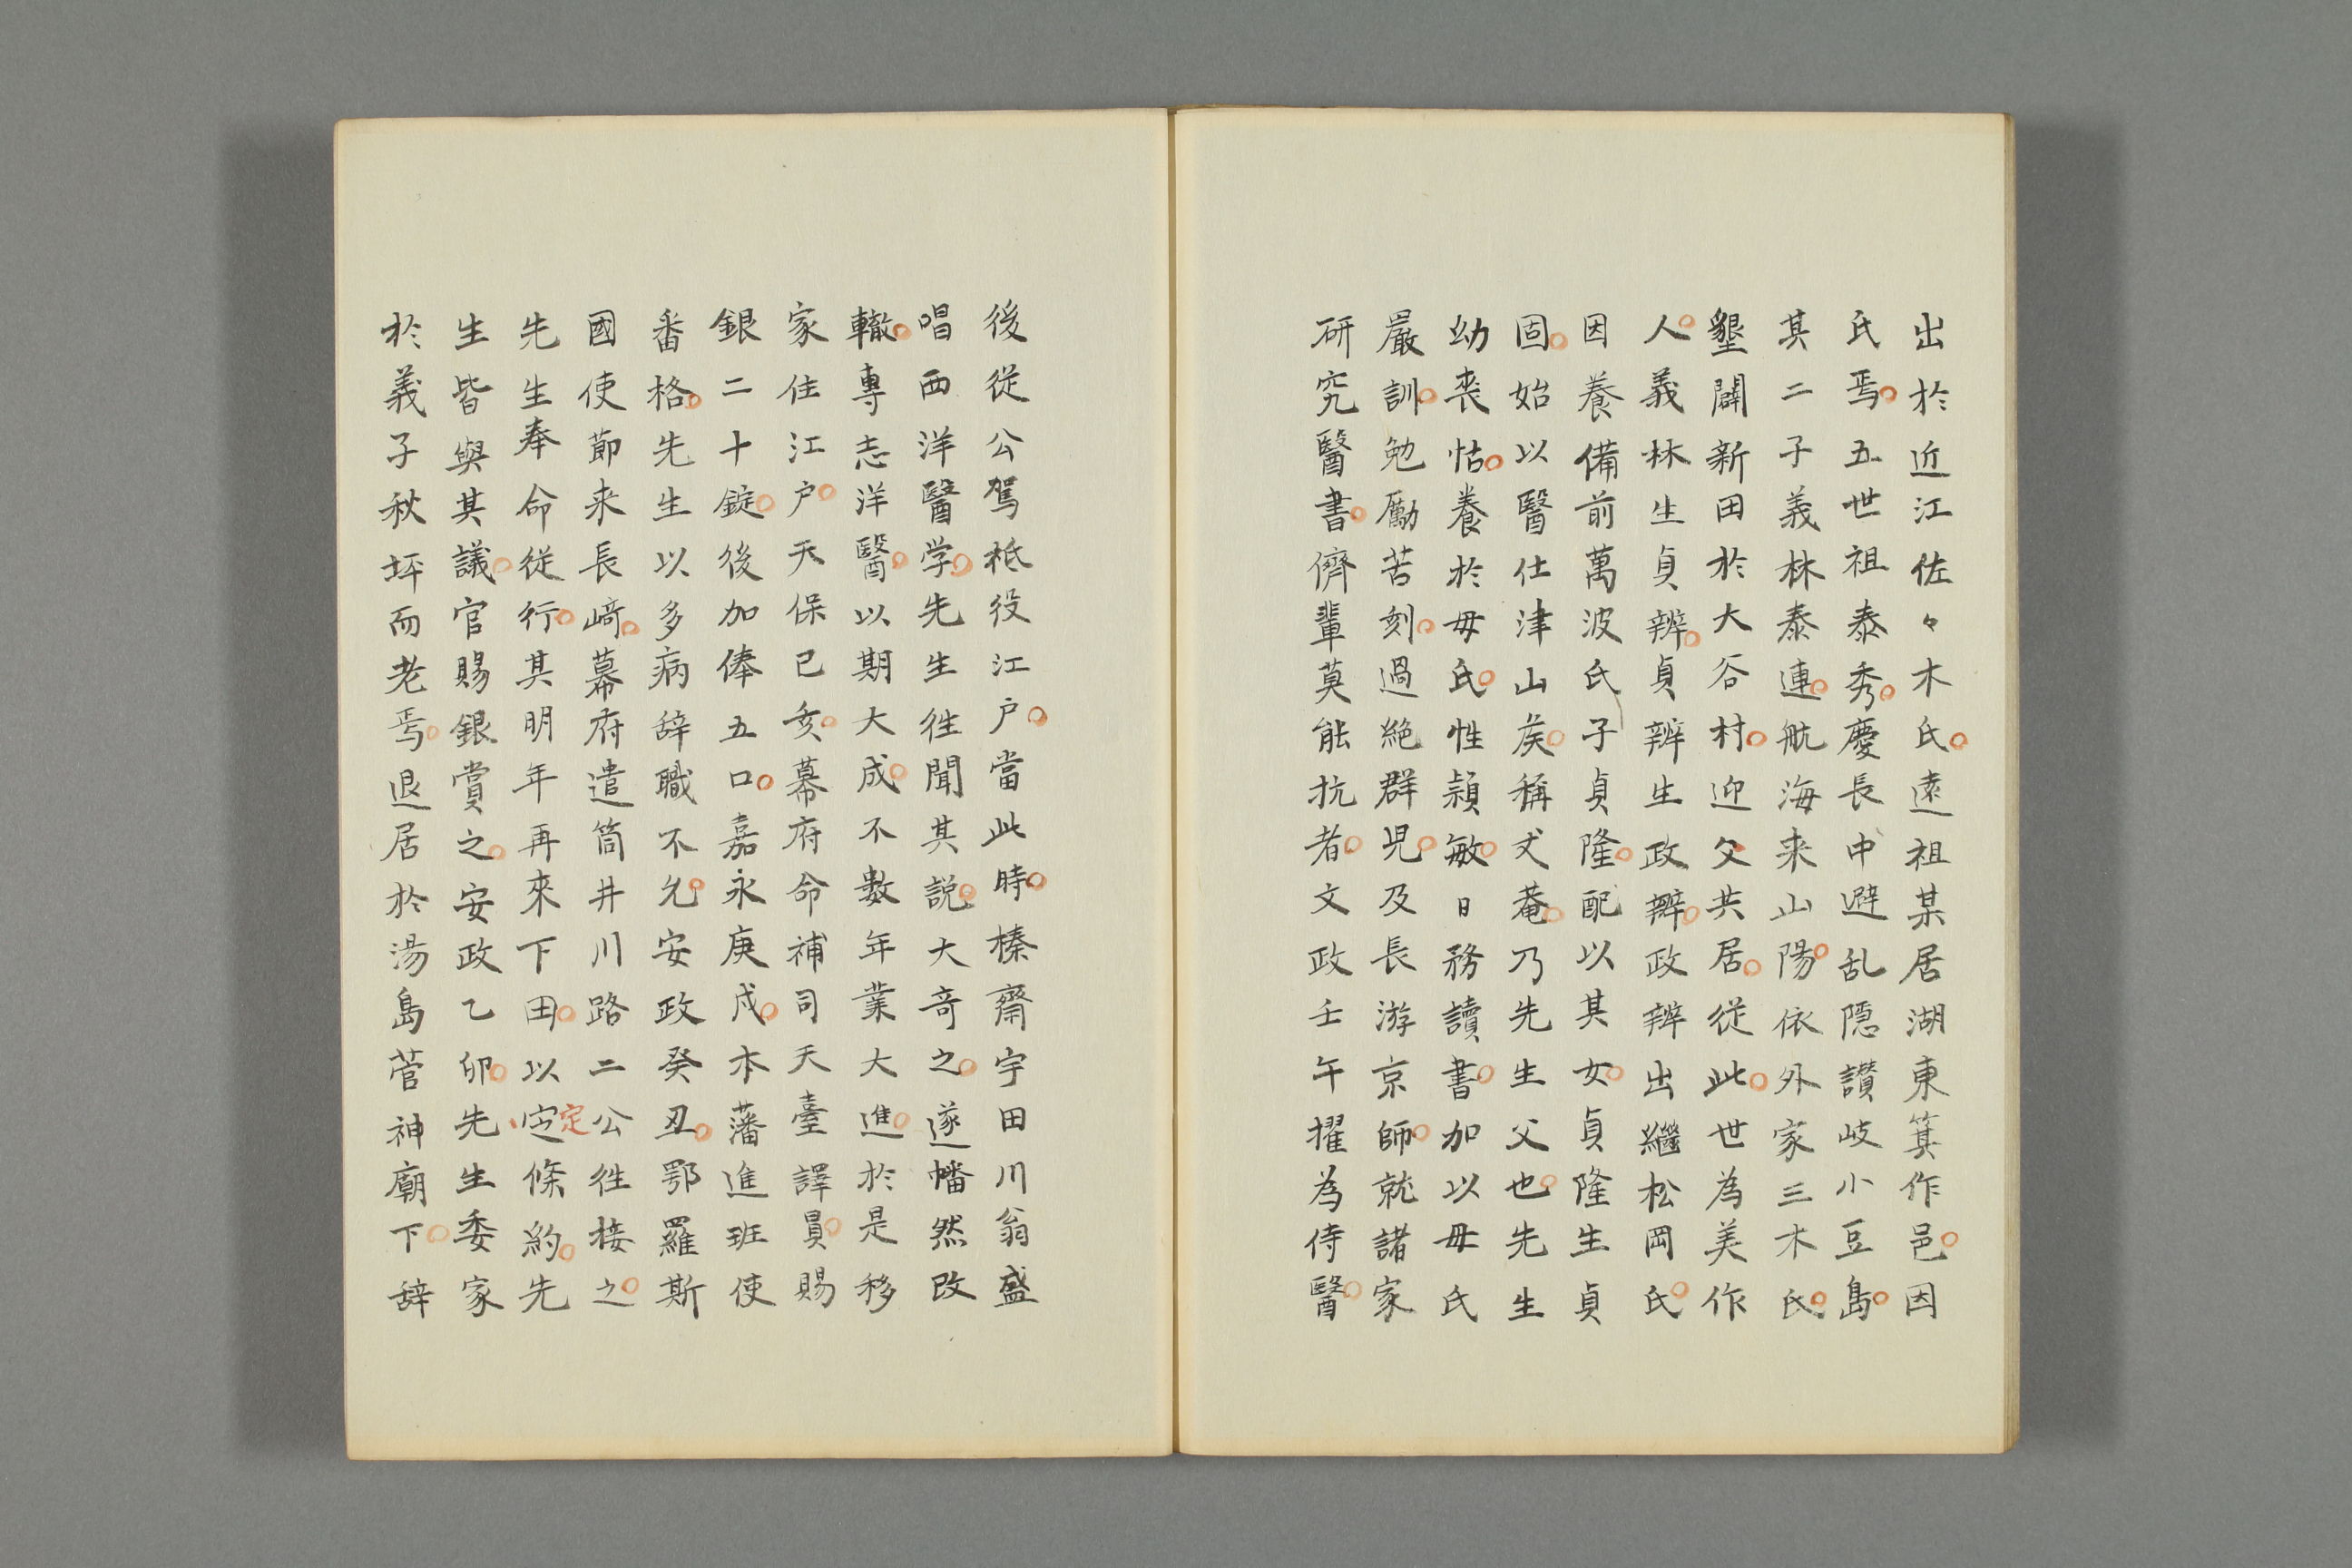 出於近江佐々木氏。遠祖某居湖東箕作邑。因
氏焉。五世祖泰秀。慶長中避乱隠讃岐小豆島。
其二子義林泰連。航海来山陽。依外家三木氏。
墾闢新田於大谷村。迎父共居。従此。世為美作
人。義林生貞辨。貞辨生政辨。政辨出繼松岡氏。
因養備前萬波氏子貞隆。配以其女。貞隆生貞
固。始以醫仕津山矦。稱丈菴。乃先生父也。先生
幼喪怙。養於毋氏。性頴敏。日務讀書。加以毋氏
嚴訓。勉勵苦刻。過絶群児。及長游京師。就諸家
研究醫書。儕輩莫能抗者。文政壬午擢為侍醫。
後從公駕祗役江戸。當此時。榛齋宇田川翁盛
唱西洋醫学。先生徃聞其説。大竒之。遂幡然改
轍。專志洋醫。以期大成。不數年業大進。於是移
家住江戸。天保己亥。幕府命補司天臺譯員。賜
銀二十錠。後加俸五口。嘉永庚戌。本藩進班使
番格。先生以多病辞職不允。安政癸丑。鄂羅斯
國使莭来長﨑。幕府遣筒井川路二公徃接之。
先生奉命從行。其明年再來下田。以定定條約。先
生皆與其議。官賜銀賞之。安政乙卯。先生委家
於義子秋坪而老焉。退居於湯島菅神廟下。辞